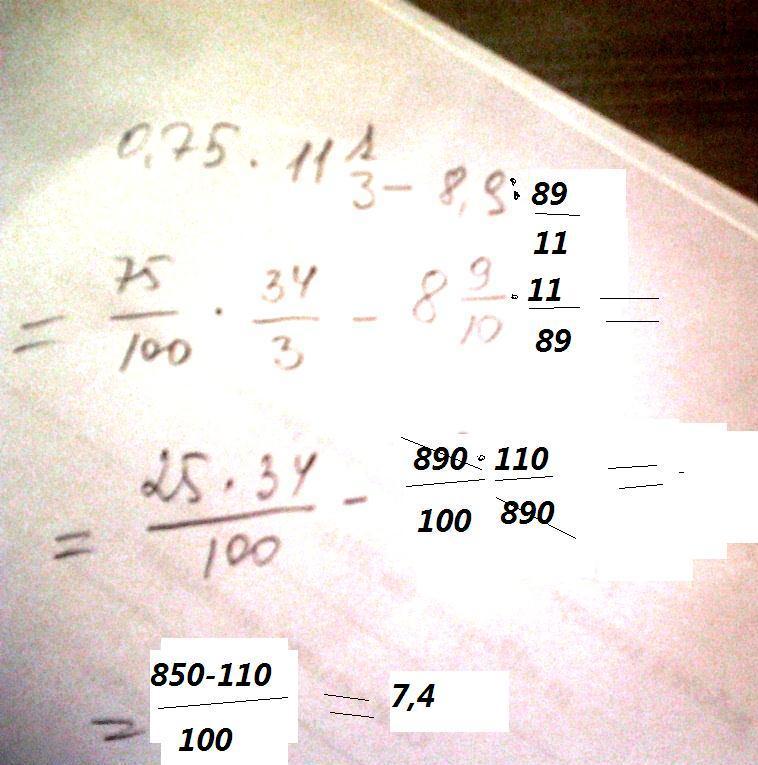 0,75 · 11 1/3 - 8,9 : 89/11
= 75/100 · 34/3 - 8 9/10 · 11/89 =
= 25·34/100 - 890·110/100 890 =
= 850-110/100 = 7,4